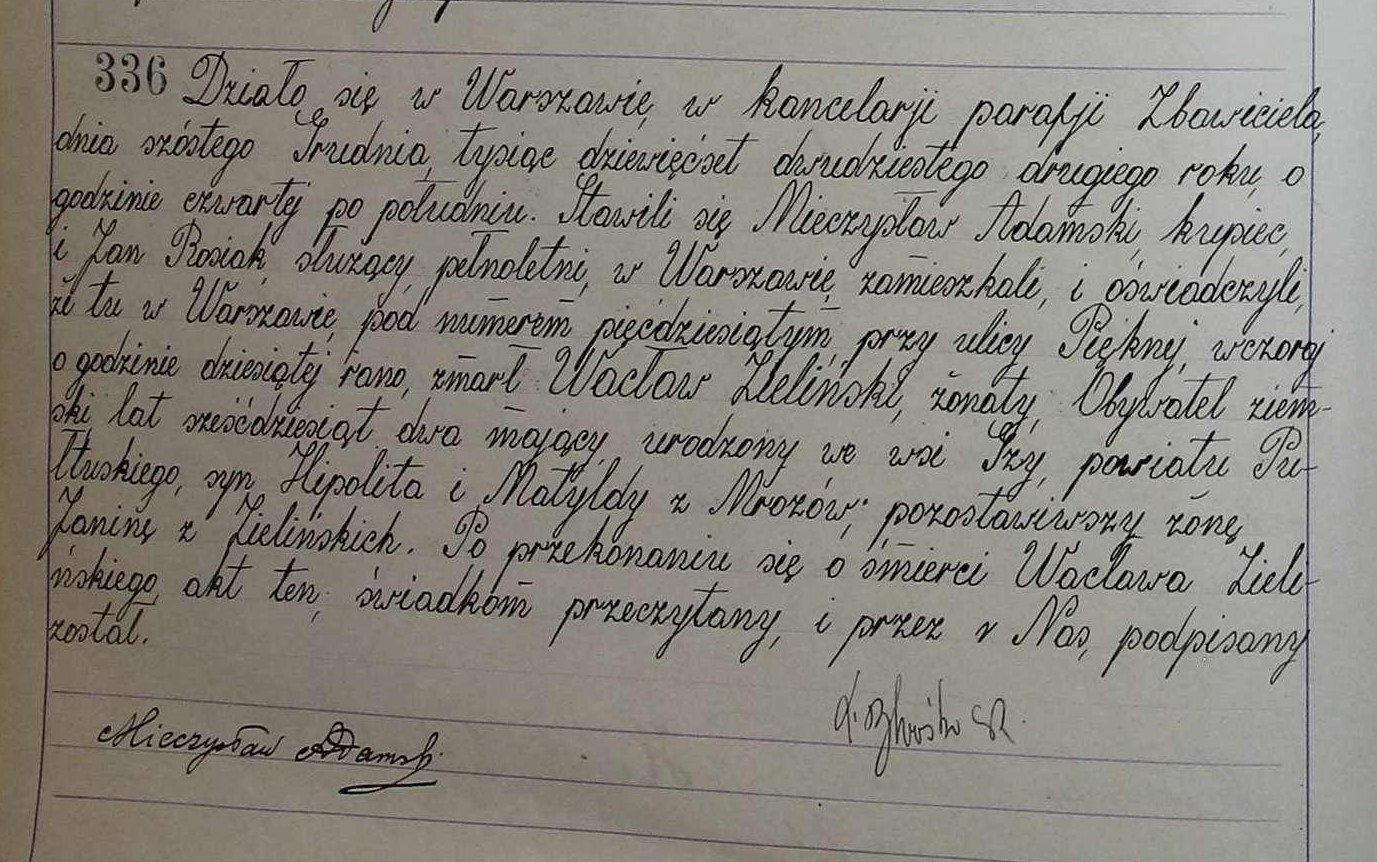 336 Działo się w Warszawie, w kancelarji parafji Zbawiciela,
dnia szóstego Grudnia, tysiąc dziewięćset dwudziestego drugiego roku, o
godzinie czwartej po południu. Stawili się Mieczysław Adamski, kupiec,
i Jan Rosiak, służący, pełnoletni, w Warszawie zamieszkali, i oświadczyli,
że tu w Warszawie, pod numerem pięćdziesiątym, przy ulicy Pięknej, wczoraj
o godzinie dziesiątej rano, zmarł Wacław Zieliński, żonaty, Obywatel ziem-
ski, lat sześćdziesiąt dwa mający, urodzony we wsi Gzy, powiatu Pu-
łtuskiego, syn Hipolita i Matyldy z Mrozów; pozostawiwszy żonę
Janinę z Zielińskich. Po przekonaniu się o śmierci Wacława Zieli-
ńskiego, akt ten, świadkom przeczytany, i przez Nas, podpisany
został.
Mieczysław Adamski